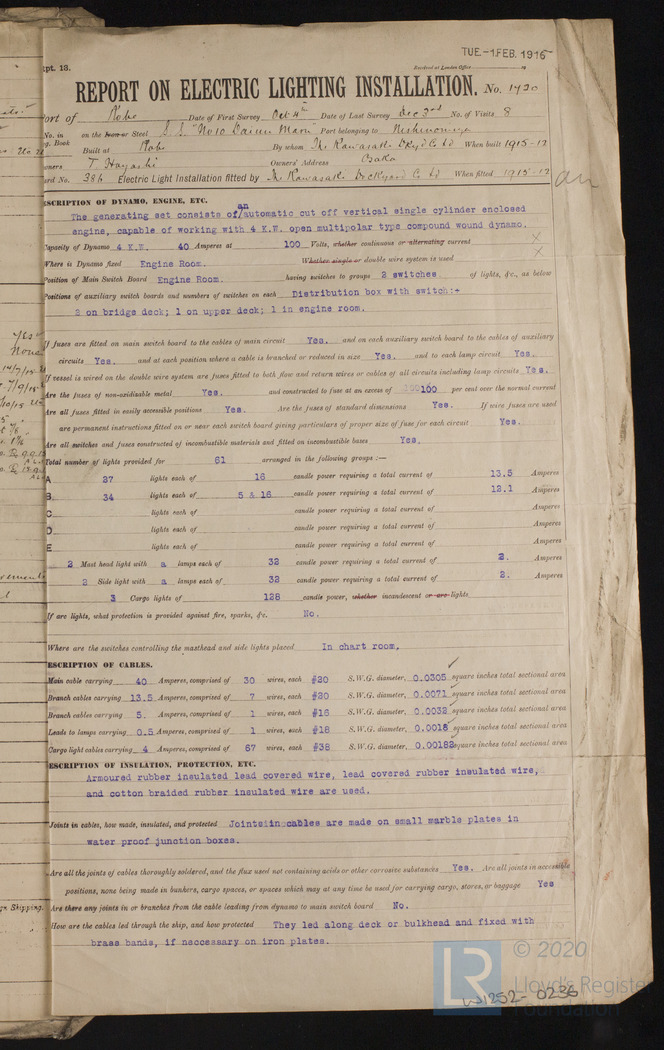 TUE-1 FEB. 1916
Rpt. 13.
Received at London Office
REPORT ON ELECTRIC LIGHTING INSTALLATION. No. 1720
Port of Kobe Date of First Survey Oct 4th Date of Last Survey Dec 3rd No. of Visits 8
No. in on the Iron or Steel S.S. "Noto Daini Maru" Port belonging to Nishinomiya
Reg. Book Built at Kobe By whom The Kawasaki DKyd Co Ld When built 1915-12
Owners T. Hayashi Owners' Address Osaka
Yard No. 386 Electric Light Installation fitted by The Kawasaki Dockyard Co Ltd When fitted 1915-12
DESCRIPTION OF DYNAMO, ENGINE, ETC.
The generating set consists of/an automatic cut off vertical single cylinder enclosed
engine, capable of working with 4 K.W. open multipolar type compound wound dynamo.
Capacity of Dynamo 4 K.W. 40 Amperes at 100 Volts, whether continuous or alternating current
Where is Dynamo fixed Engine Room. Whether single or double wire system is used
Position of Main Switch Board Engine Room. having switches to groups 2 switches of lights, &c., as below
Positions of auxiliary switch boards and numbers of switches on each Distribution box with switch:+
2 on bridge deck; 1 on upper deck; 1 in engine room.
If fuses are fitted on main switch board to the cables of main circuit Yes. and on each auxiliary switch board to the cables of auxiliary
circuits Yes. and at each position where a cable is branched or reduced in size Yes. and to each lamp circuit Yes.
If vessel is wired on the double wire system are fuses fitted to both flow and return wires or cables of all circuits including lamp circuits Yes.
Are the fuses of non-oxidisable metal Yes. and constructed to fuse at an excess of 100 per cent over the normal current
Are all fuses fitted in easily accessible positions Yes. Are the fuses of standard dimensions Yes. If wire fuses are used
are permanent instructions fitted on or near each switch board giving particulars of proper size of fuse for each circuit Yes.
Are all switches and fuses constructed of incombustible materials and fitted on incombustible bases Yes.
Total number of lights provided for 61 arranged in the following groups :—
A 27 lights each of 16 candle power requiring a total current of 13.5 Amperes
B 34 lights each of 5 & 16 candle power requiring a total current of 12.1 Amperes
C lights each of candle power requiring a total current of Amperes
D lights each of candle power requiring a total current of Amperes
E lights each of candle power requiring a total current of Amperes
2 Mast head light with a lamps each of 32 candle power requiring a total current of 2. Amperes
2 Side light with a lamps each of 32 candle power requiring a total current of 2. Amperes
3 Cargo lights of 128 candle power, whether incandescent or arc lights
If arc lights, what protection is provided against fire, sparks, &c. No.
Where are the switches controlling the masthead and side lights placed In chart room,
DESCRIPTION OF CABLES.
Main cable carrying 40 Amperes, comprised of 30 wires, each #20 S.W.G. diameter, 0.0305 square inches total sectional area
Branch cables carrying 13.5 Amperes, comprised of 7 wires, each #20 S.W.G. diameter, 0.0071 square inches total sectional area
Branch cables carrying 5. Amperes, comprised of 1 wires, each #16 S.W.G. diameter, 0.0032 square inches total sectional area
Leads to lamps carrying 0.5 Amperes, comprised of 1 wires, each #18 S.W.G. diameter, 0.0018 square inches total sectional area
Cargo light cables carrying 4 Amperes, comprised of 67 wires, each #38 S.W.G. diameter, 0.00182 square inches total sectional area
DESCRIPTION OF INSULATION, PROTECTION, ETC.
Armoured rubber insulated lead covered wire, lead covered rubber insulated wire,
and cotton braided rubber insulated wire are used.
Joints in cables, how made, insulated, and protected Joints in cables are made on small marble plates in
water proof junction boxes.
Are all the joints of cables thoroughly soldered, and the flux used not containing acids or other corrosive substances Yes. Are all joints in accessible
positions, none being made in bunkers, cargo spaces, or spaces which may at any time be used for carrying cargo, stores, or baggage Yes
Are there any joints in or branches from the cable leading from dynamo to main switch board No.
How are the cables led through the ship, and how protected They led along deck or bulkhead and fixed with
brass bands, if neccessary on iron plates.
© 2020
LR Lloyd's Register
Foundation
W1252-0236